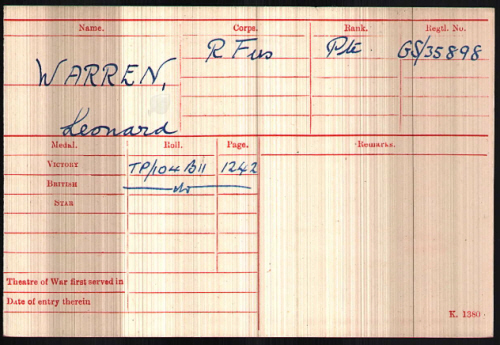 Name. Corps. Rank. Regtl. No.
WARREN, R Fus Pte GS/35898
Leonard
Medal. Roll. Page. Remarks.
VICTORY TP/104 B11 1242
BRITISH do
STAR
Theatre of War first served in
Date of entry therein
K. 1380